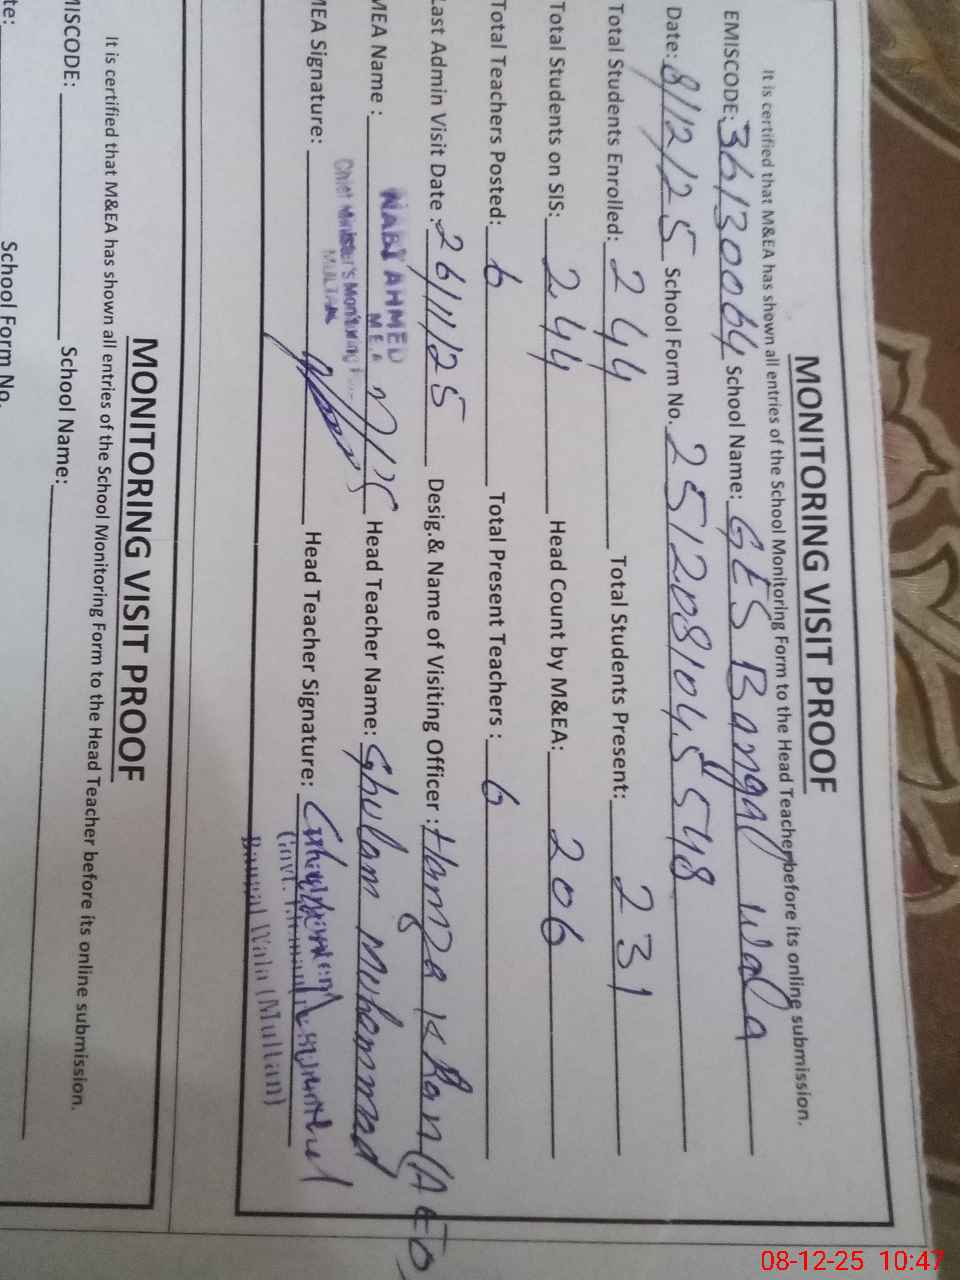 MONITORING VISIT PROOF
It is certified that M&EA has shown all entries of the School Monitoring Form to the Head Teacher before its online submission.
EMISCODE: 36130064 School Name: GES Bangal wala
Date: 8/12/25 School Form No. 2512081045548
Total Students Enrolled: 244 Total Students Present: 231
Total Students on SIS: 244 Head Count by M&EA: 206
Total Teachers Posted: 6 Total Present Teachers: 6
Last Admin Visit Date: 26/11/25 Desig.& Name of Visiting Officer: Hamza Khan (AEO
MEA Name: NABI AHMED Head Teacher Name: Ghulam Muhammad
M.E.A
Chief Minister's Monitoring
MULTAN
MEA Signature: Head Teacher Signature:
Govt.
Bangal Wala (Multan)
MONITORING VISIT PROOF
It is certified that M&EA has shown all entries of the School Monitoring Form to the Head Teacher before its online submission.
MISCODE: School Name:
te: School Form No.
08-12-25 10:47